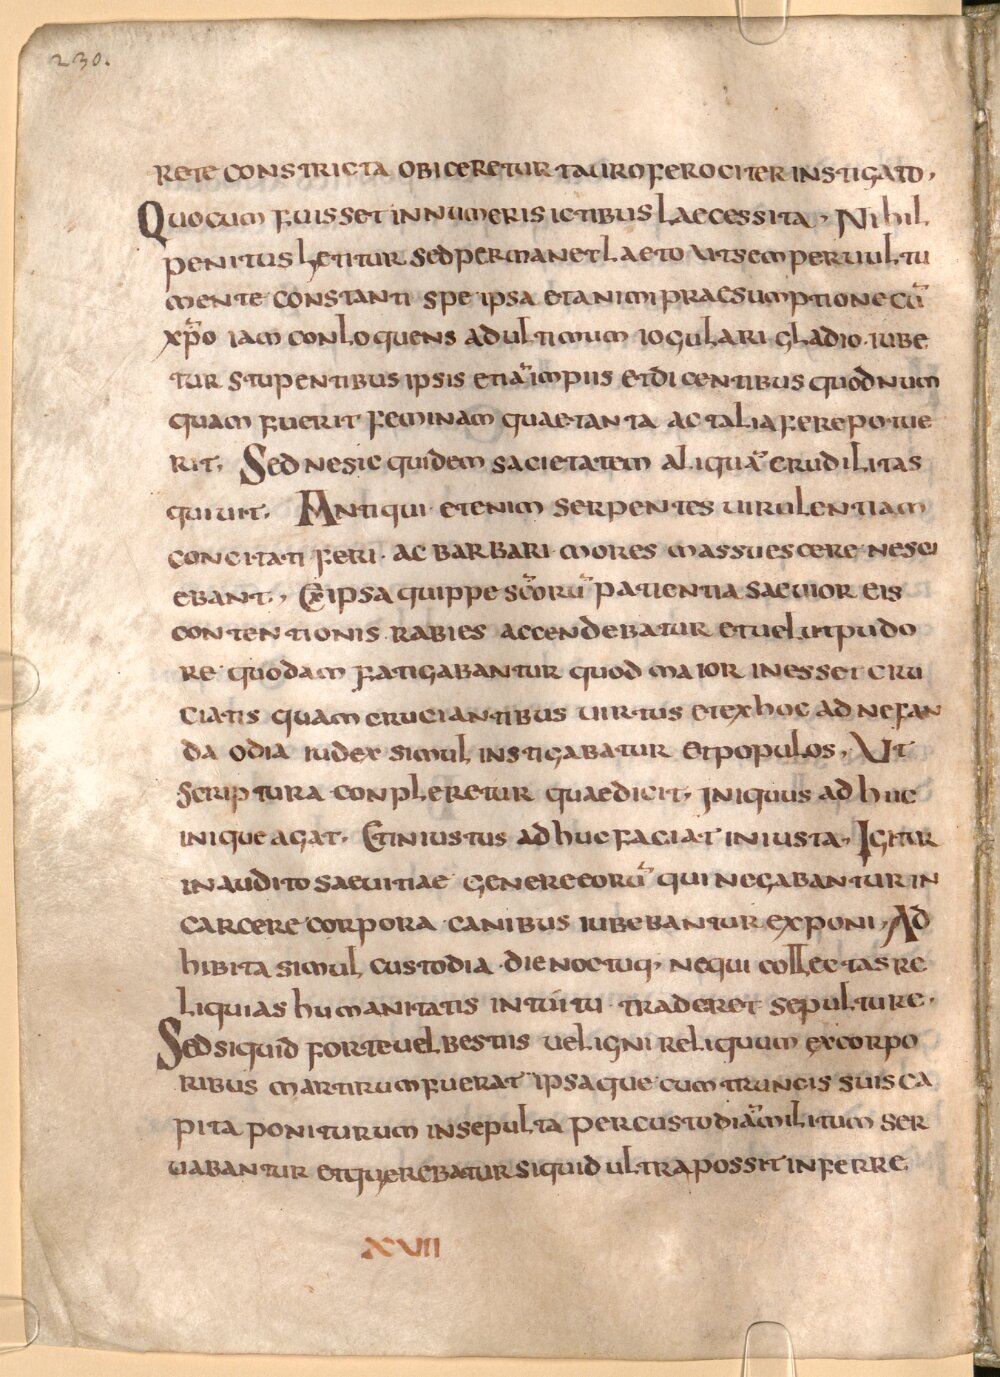 230.
rete constricta obiceretur tauro ferociter instigato,
Quocum fuisset innumeris ictibus laecessita, Nihil
penitus letitur sed permanet laeto ut semper uultu
mente constanti spe ipsa et animi praesumptione cū
xp̄o iam conloquens ad ultimum iogulari gladio iube
tur stupentibus ipsis etiā impiis et dicentibus quod num
quam fuerit feminam quae tanta ac talia fere potue
rit, Sed ne sic quidem sacietatem aliquā crudilitas
quiuit, Antiqui etenim serpentes uirulentiam
concitati feri ac barbari mores massuescere nesci
ebant, Ex ipsa quippe sc̄orū patientia saeuior eis
contentionis rabies accendebatur et uelut pudo
re quodam fatigabantur quod maior inesset cru
ciatis quam cruciantibus uirtus et ex hoc ad nefan
da odia iudex simul instigabatur et populos, Ut
scriptura conpleretur quae dicit, Iniquus adhuc
inique agat, Et iniustus adhuc faciat iniusta, Igitur
inaudito saeuitiae genere eorū qui negabantur in
carcere corpora canibus iubebantur exponi, Ad
hibita simul custodia die noctuq; nequi collectas re
liquias humanitatis intuitu traderet sepulture,
Sed siquid forte uel bestiis uel igni reliquum ex corpo
ribus martirum fuerat ipsaque cum truncis suis ca
pita poniturum insepulta per custodiā militum ser
uabantur et querebatur siquid ultra possit inferre
XVII